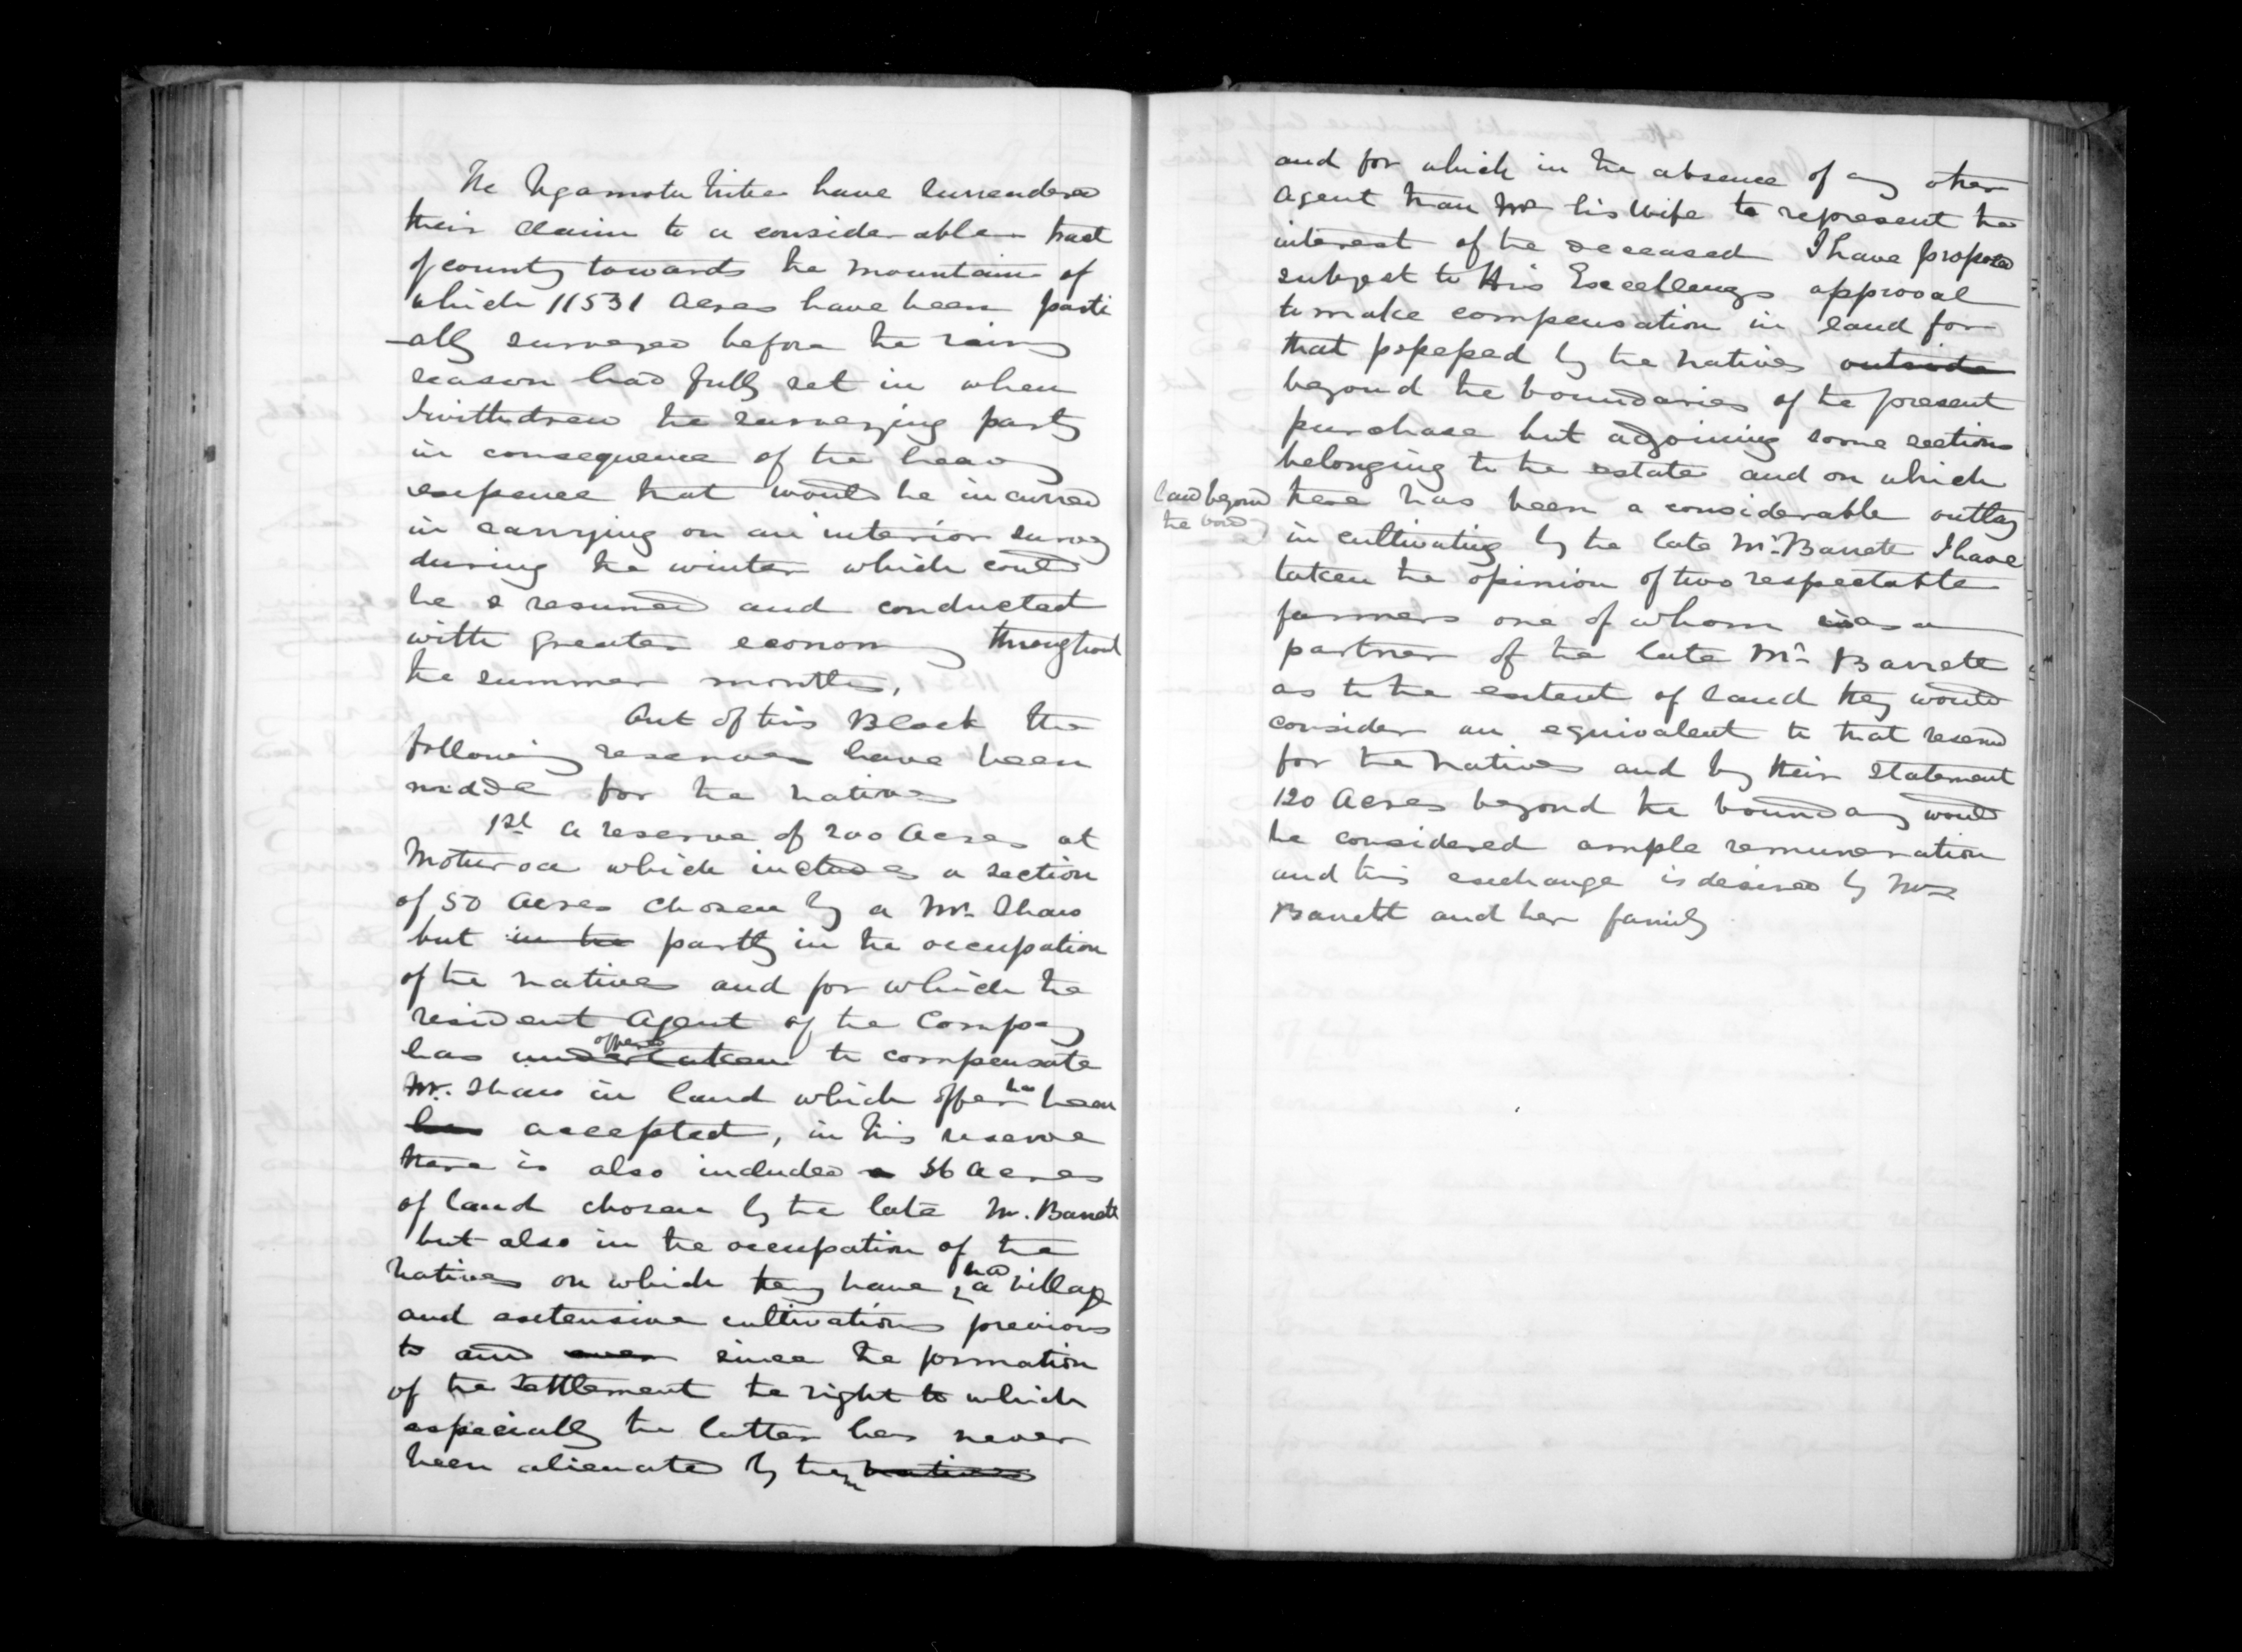 The Ngamotu tribe have surrendered
their claim to a considerable tract
of country towards the mountain of
which 11531 Acres have been parti
-ally surveyed before the rainy
season had fully set in when
I withdrew the surveying party
in consequence of the heavy
expence that would be incurred
in carrying on an interior survey
during the winter which could
be resumed and conducted
with greater economy throughout
the summer months,
Out of this Block the
following reserves have been
made for the natives
1st a reserve of 200 Acres at
Moturoa which includes a section
of 50 Acres chosen by a Mr. Shaw
but in the partly in the occupation
of the natives and for which the
resident Agent of the Company
has undertaken offered to compensate
Mr. Shaw in land which offer has been
has accepted, in this reserve
there is also included a 36 Acres
of land chosen by the late Mr. Barrett
but also in the occupation of the
natives on which they have had a village
and extensive cultivations previous
to and ever since the formation
of the Settlement the right to which
especially the latter has never
been alienated by them natives
and for which in the absence of any other
Agent than his Wife to represent the
interest of the deceased I have proposed
subject to His Excellency's approval
to make compensation in land for
that possessed by the natives outside
beyond the boundaries of the present
purchase but adjoining some sections
belonging to the estate and on which
land beyond
the
there has been a considerable outlay
in cultivating by the late Mr. Barrett I have
taken the opinion of two respectable
farmers one of whom was a
partner of the late Mr. Barrett
as to the extent of land they would
consider an equivalent to that reserved
for the natives and by their statement
120 Acres beyond the boundary would
be considered ample remuneration
and this exchange is desired by Mrs
Barrett and her family